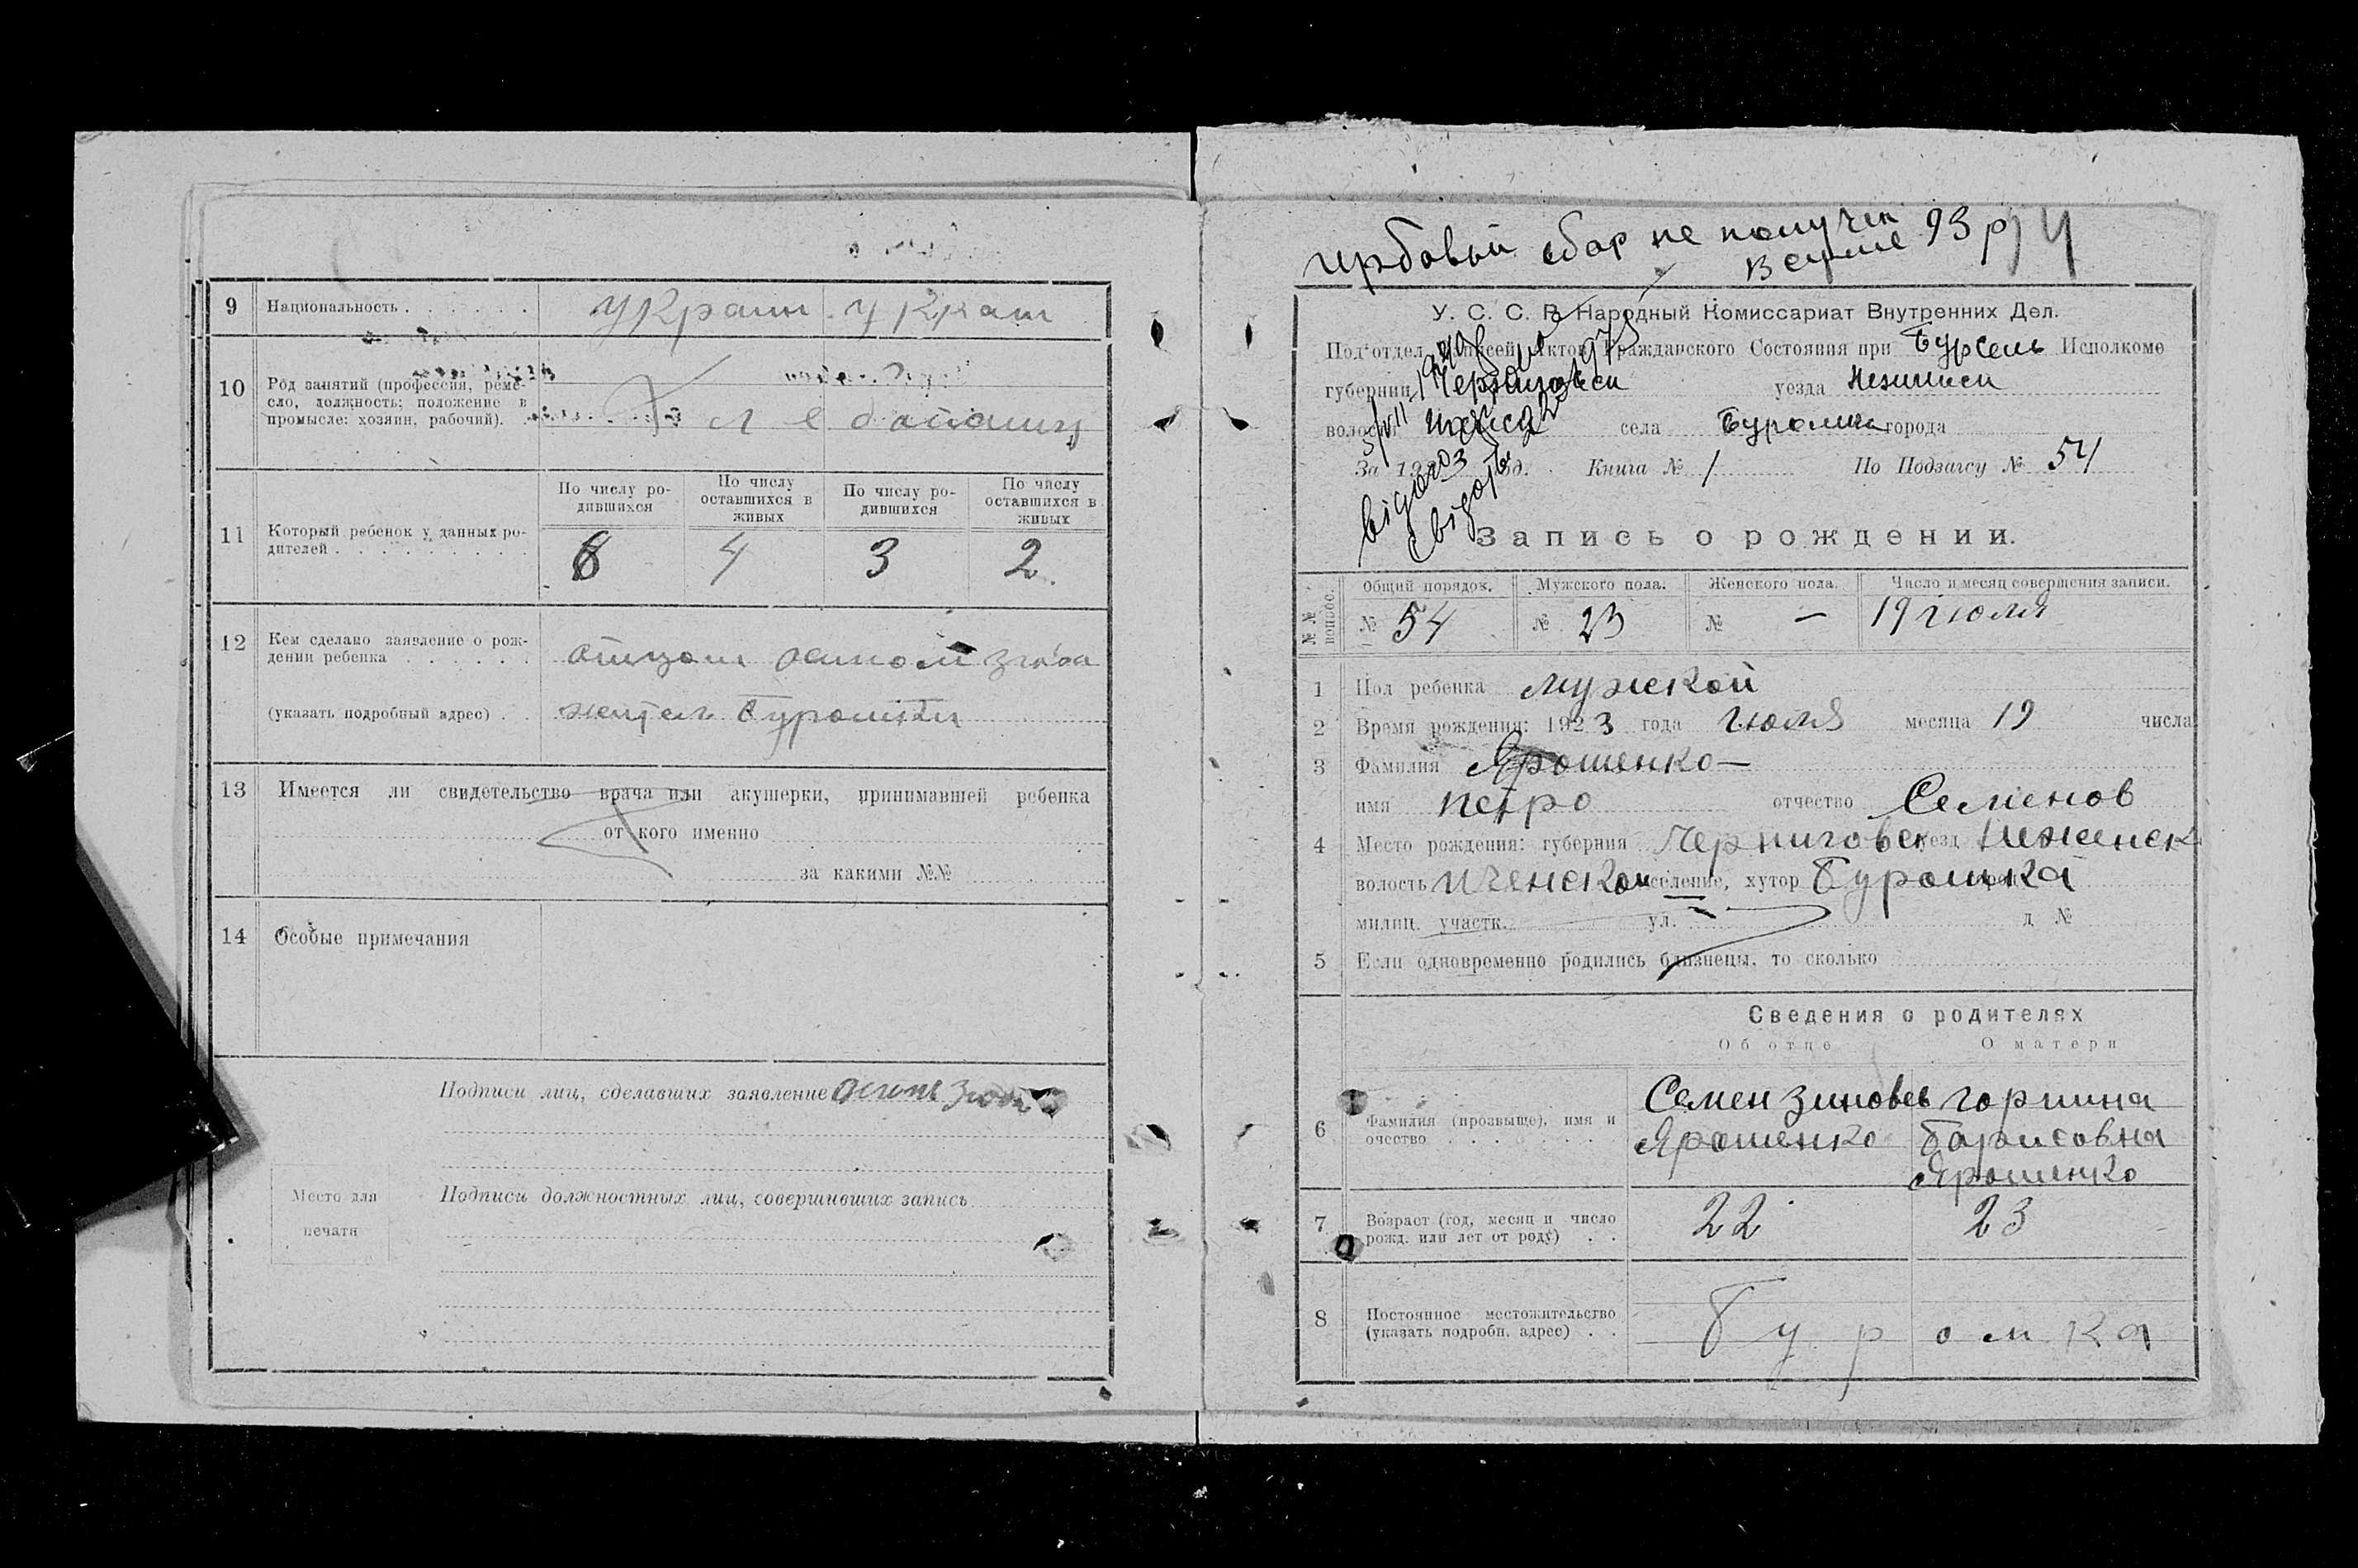 9 Национальность . . . . . . украин украин
10 Род занятий (профессия, реме-
сло, должность: положение в
промысле: хозяин, рабочий).
Хлебопашц
11 Который ребенок у данных ро-
дителей . . . . . . . . .
По числу ро-
дившихся
По числу
оставшихся в
живых
По числу ро-
дившихся
По числу
оставшихся в
живых
6 4 3 2
12 Кем сделано заявление о рож-
дении ребенка . . . . . .
отцом
(указать подробный адрес) . .
жител Буромки
13 Имеется ли свидетельство врача или акушерки, принимавшей ребенка
от кого именно
за какими №№
14 Особые примечания
Подписи лиц, сделавших заявление
Место для
печати
Подписи должностных лиц, совершивших запись
гербовый сбор не получен
в сумме 93 р
У. С. С. Р. Народный Комиссариат Внутренних Дел.
Под'отдел Записей Актов Гражданского Состояния при Бурсель Исполкоме
губернии Черниговск уезда Нежинск
волости села Буромка города
За 192 3 год. Книга № 1 По Подзагсу № 54
Запись о рождении.
№ № вопрос.
Общий порядок. Мужского пола. Женского пола. Число и месяц совершения записи.
№ 54 № 23 № — 19 июля
1 Пол ребенка мужской
2 Время рождения: 1923 года июля месяца 19 числа
3 Фамилия Ярошенко —
имя Петро отчество Семенов
4 Место рождения: губерния Черниговск уезд Неженск
волость Иченской селение, хутор Буромка
милиц. участк. ул. д №
5 Если одновременно родились близнецы, то сколько
Сведения о родителях
Об отце О матери
6 Фамилия (прозвыще), имя и
очество . . . . . . . .
Семен Зиновьев
Ярошенко
Горпина
Борисовна
Ярошенко
7 Возраст (год, месяц и число
рожд. или лет от роду) . .
22 23
8 Постоянное местожительство
(указать подробн. адрес) . .
Буромка